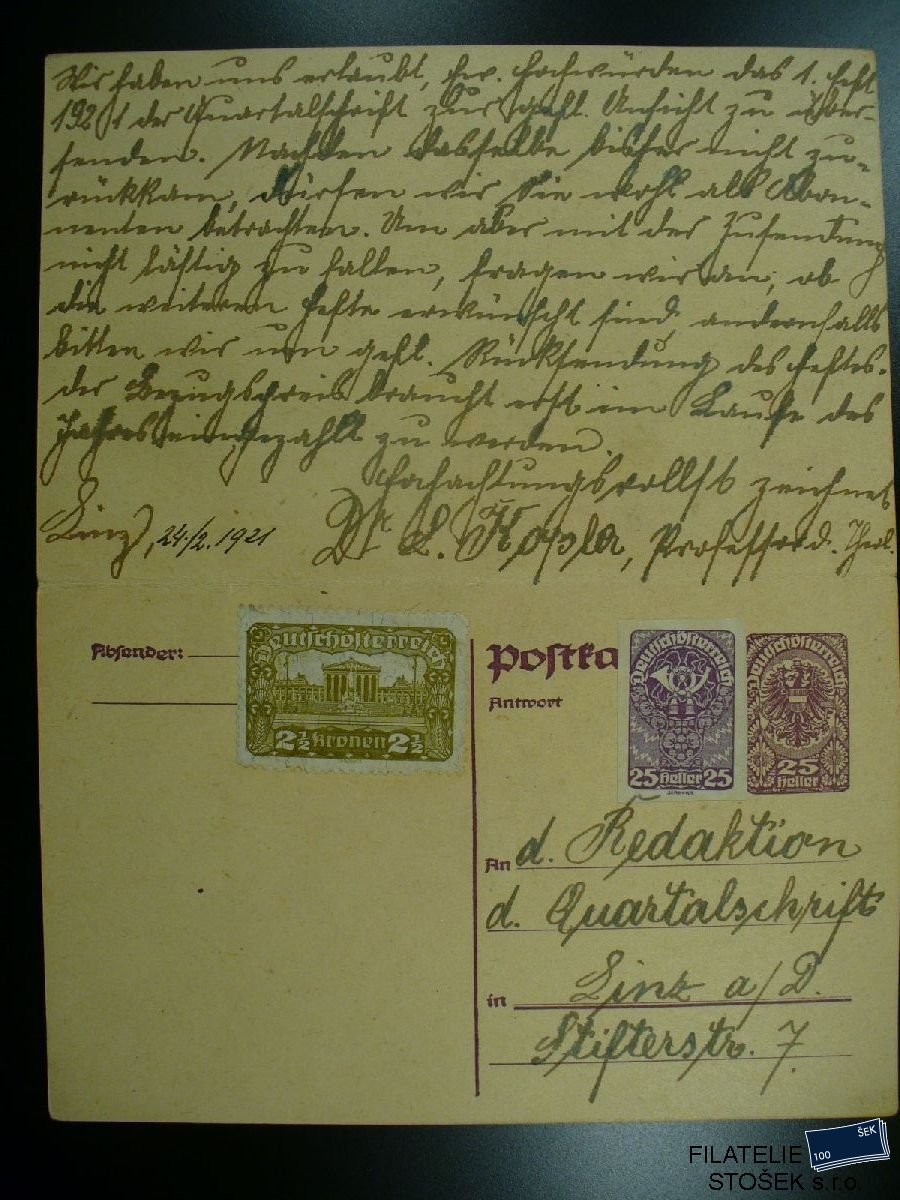 Wir haben uns erlaubt, Ew. Hochwürden das 1. Heft
1921 der Quartalschrift zur gefl. Ansicht zu über-
senden. Nachdem dasselbe bisher nicht zu-
rückkam, dürfen wir Sie wohl als Abon-
nenten betrachten. Um aber mit der Zusendung
nicht lästig zu fallen, fragen wir an, ob
die weiteren Hefte erwünscht sind, andernfalls
bitten wir um gefl. Rücksendung des Heftes.
Der Bezugspreis braucht erst im Laufe des
Jahres eingezahlt zu werden.
Hochachtungsvollst zeichnet
Linz, 24./2. 1921 Dr. L. Kopler, Professor d. Theol.
Absender:
Deutschösterreich
2½ Kronen 2½
Postka
Antwort
Deutschösterreich
25 Heller 25
Deutschösterreich
25
Heller
An d. Redaktion
d. Quartalschrift
in Linz a/D.
Stifterstr. 7.
FILATELIE
STOŠEK s.r.o.
100 ŠEK